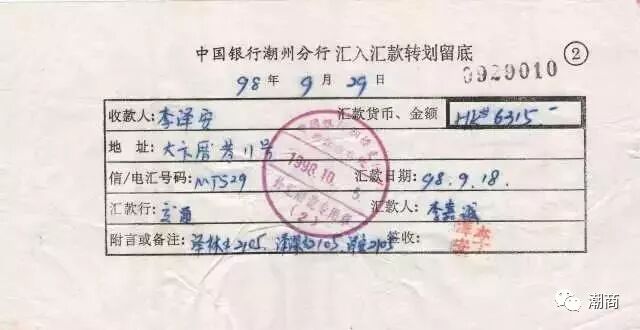 中国银行潮州分行 汇入汇款转划留底 ②
98 年 9 月 29 日 0929010
收款人: 李泽安 汇款货币、金额 HK$ 6315.-
地 址: 大六居巷 11号
信/电汇号码: MTS29 汇款日期: 98.9.18.
汇款行: 汇款人: 李嘉诚
附言或备注: 泽林2105. 泽 2105 泽安2105 签收:
1998.10.5.
(2)
李泽安
潮商